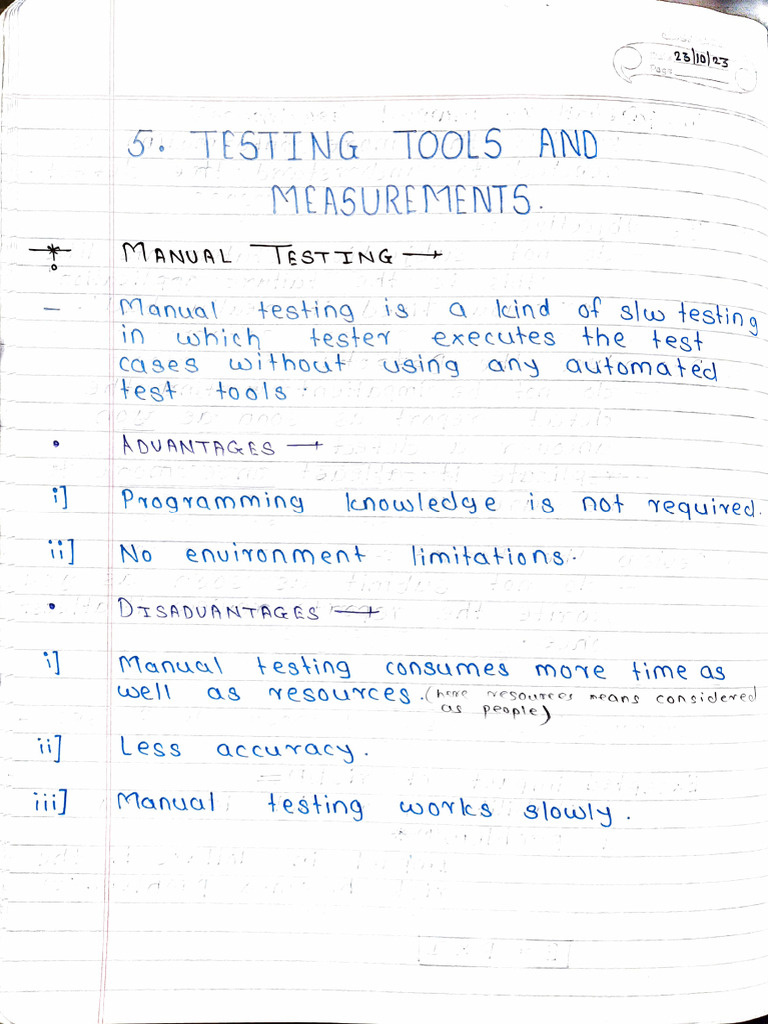 23/10/23
5. TESTING TOOLS AND
MEASUREMENTS.
* MANUAL TESTING →
- Manual testing is a kind of s/w testing
in which tester executes the test
cases without using any automated
test tools.
• ADVANTAGES →
i] Programming knowledge is not required.
ii] No environment limitations.
• DISADVANTAGES →
i] Manual testing consumes more time as
well as resources. (here resources means considered
as people)
ii] Less accuracy.
iii] Manual testing works slowly.